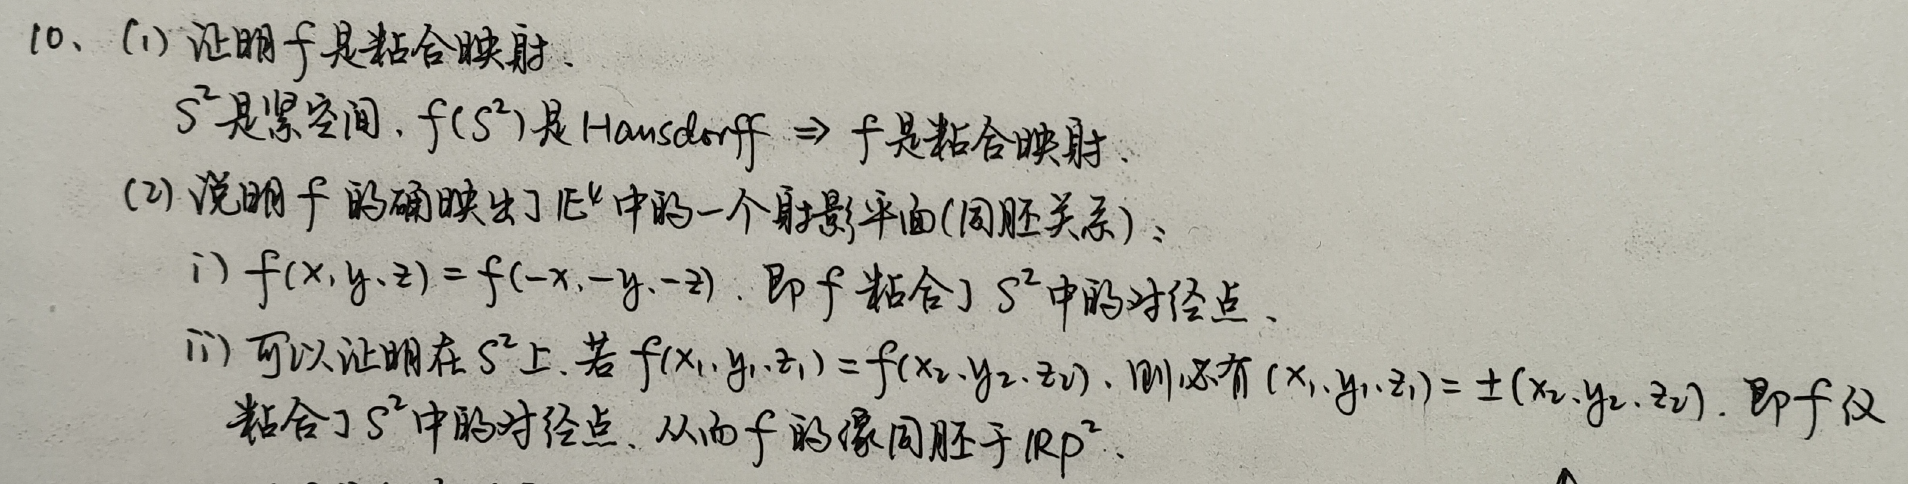 10、(1) 证明 f 是粘合映射.
S² 是紧空间, f(S²) 是 Hausdorff ⇒ f 是粘合映射.
(2) 说明 f 的确映出了 E⁴ 中的一个射影平面(同胚关系):
i) f(x, y, z) = f(-x, -y, -z). 即 f 粘合了 S² 中的对径点.
ii) 可以证明在 S² 上, 若 f(x₁, y₁, z₁) = f(x₂, y₂, z₂), 则必有 (x₁, y₁, z₁) = ±(x₂, y₂, z₂). 即 f 仅
粘合了 S² 中的对径点, 从而 f 的像同胚于 RP².